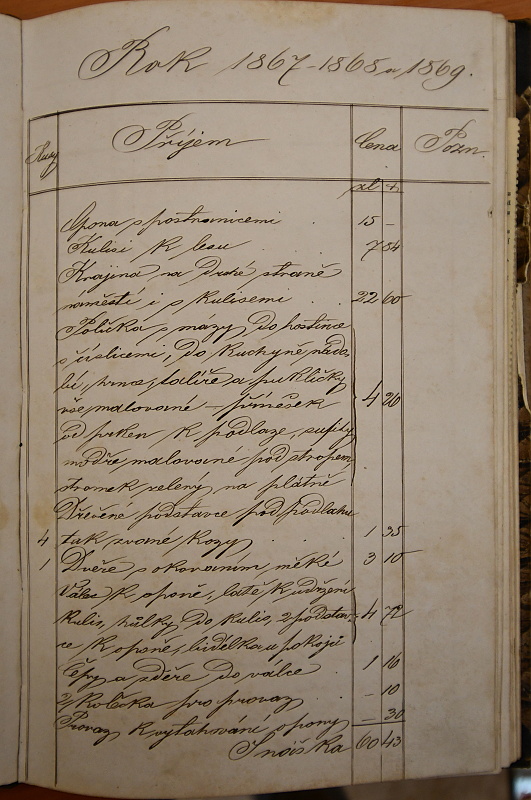 Rok 1867-1868 a 1869.
Kusy Příjem Cena Pozn.
zl. x
Opona s postranicemi . 15 -
Kulisi k lesu . 7 84
Krajina na druhé straně
náměstí i s kulisemi . . 22 60
Polička s mázy do hostince
s číslicemi, do kuchyně nádo-
bí, hrnce, talíře a pukličky
vše malované - přínešek 4 20
od prken k podlaze, sufity
modře malované pod stropem
stromek zelený na plátně
Dřevěné podstavce pod podlahu
4 tak zvané kozy . 1 35
1 Dvéře s okováním měké 3 10
Válec k oponě, latě k udržení
kulis, hůlky do kulis, 2 podstav- 4 72
ce k oponě, lidélka u pokojů
Čépy a zděře do válce . 1 16
2 kolečka pro provaz . - 10
Provaz k vytahování opony - 30
Snáška 60 43